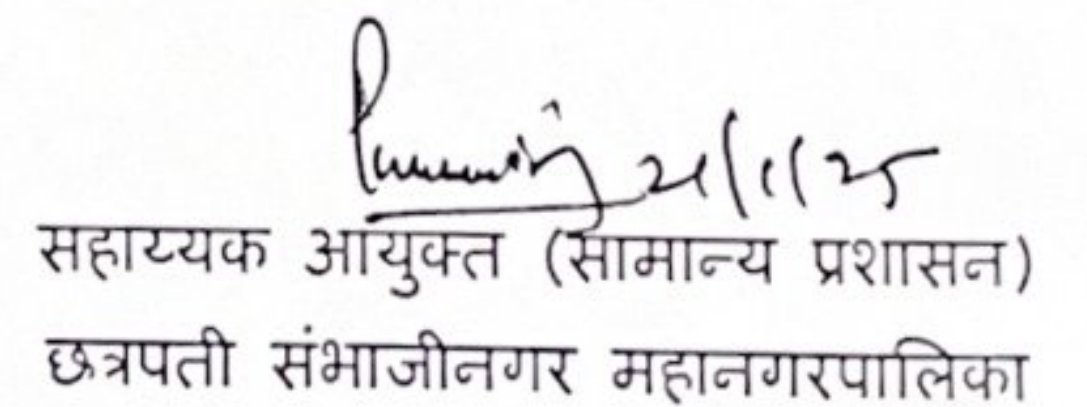 21/1/25
सहाय्यक आयुक्त (सामान्य प्रशासन)
छत्रपती संभाजीनगर महानगरपालिका